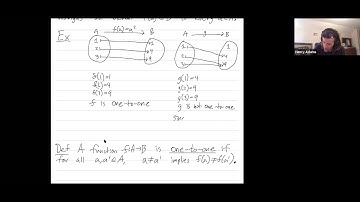 Ex
A f(a)=a² B
A g B
1 1
2 4
3 9
1 1
2 4
3 9
f(1)=1
f(2)=4
f(3)=9
f is one-to-one
g(1)=4
g(2)=9
g(3)=9
g is not one-to-one
Def A function f:A→B is one-to-one if
for all a,a'∈A, a≠a' implies f(a)≠f(a').
Henry Adams